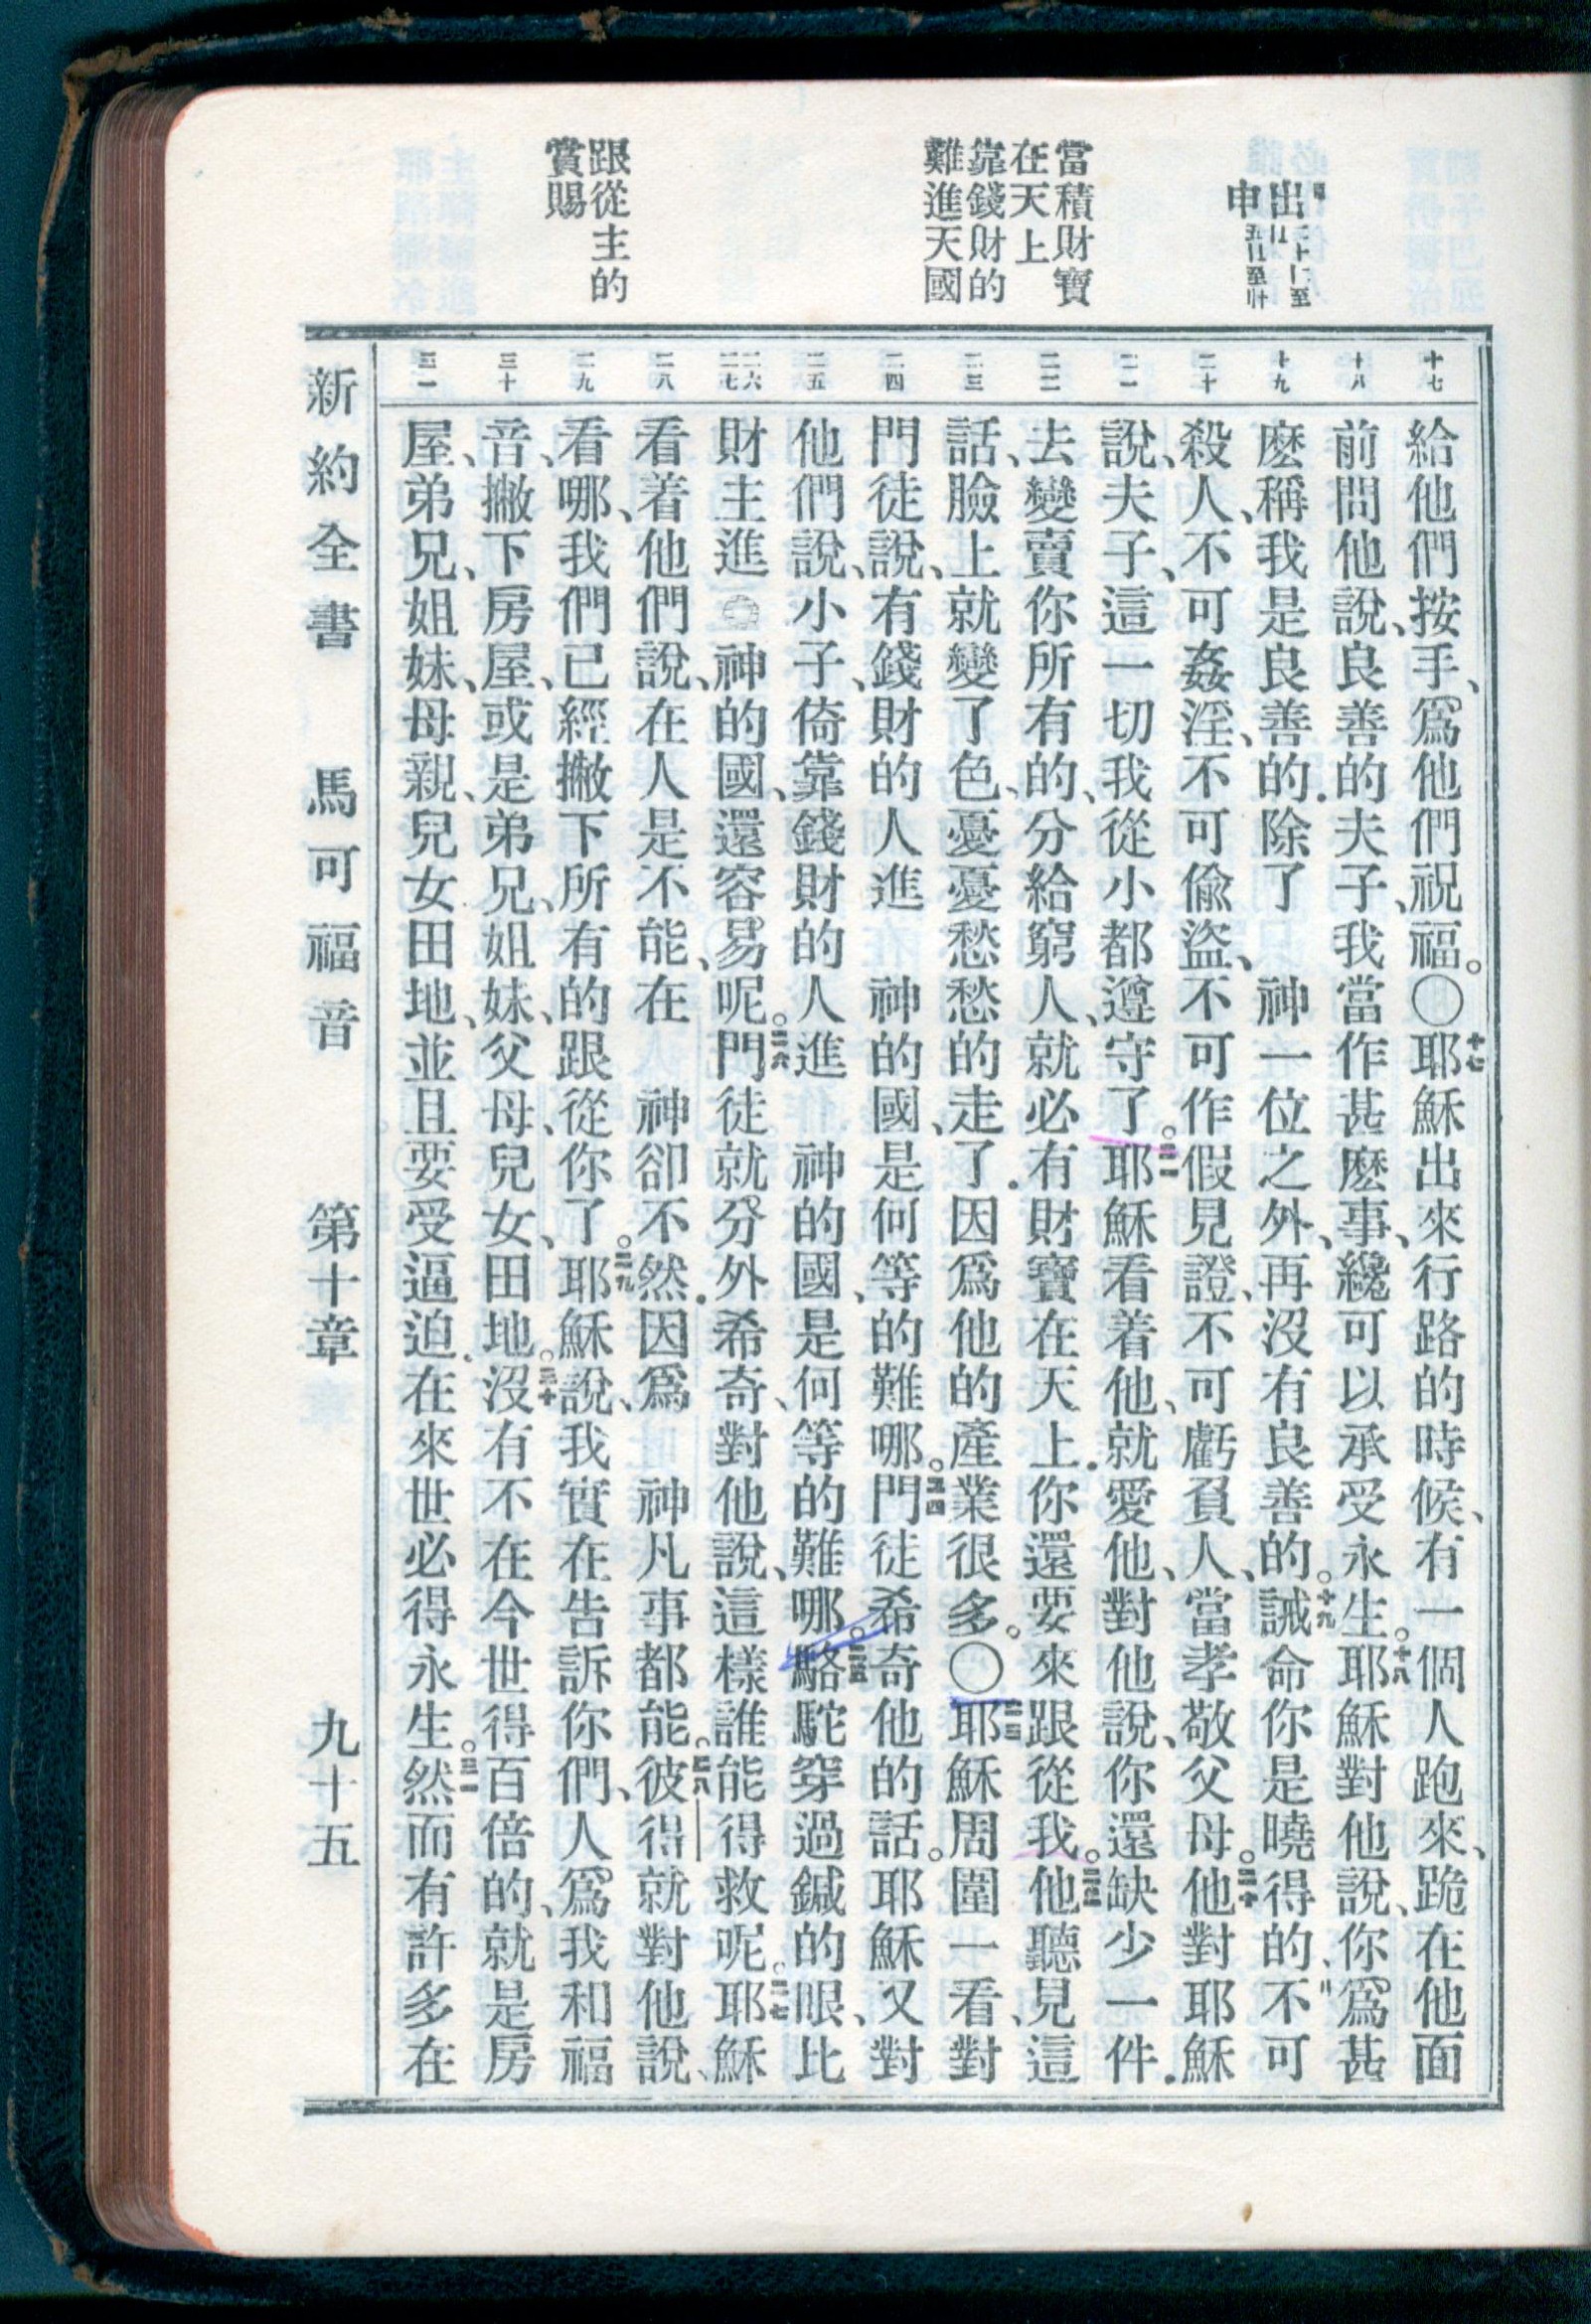 出 二十〇十二至
申 五〇十七至廿
當積財寶
在天上
靠錢財的
難進天國
跟從主的
賞賜
十七
十八
十九
二十
二一
二二
二三
二四
二五
二六
二七
二八
二九
三十
三一
給他們按手、爲他們祝福。〇十七耶穌出來行路的時候、有一個人跑來、跪在他面
前問他說、良善的夫子、我當作甚麽事、纔可以承受永生。十八耶穌對他說、你爲甚
麽稱我是良善的．除了 神一位之外、再沒有良善的。十九誡命你是曉得的、不可
殺人、不可姦淫、不可偷盜、不可作假見證、不可虧負人、當孝敬父母。二十他對耶穌
說、夫子、這一切我從小都遵守了。二一耶穌看着他、就愛他、對他說、你還缺少一件．
去變賣你所有的、分給窮人、就必有財寶在天上．你還要來跟從我。二二他聽見這
話、臉上就變了色、憂憂愁愁的走了．因爲他的產業很多。〇二三耶穌周圍一看、對
門徒說、有錢財的人進 神的國、是何等的難哪。二四門徒希奇他的話。耶穌又對
他們說、小子、倚靠錢財的人進 神的國、是何等的難哪。二五駱駝穿過鍼的眼、比
財主進 神的國、還容易呢。二六門徒就分外希奇、對他說、這樣誰能得救呢。二七耶穌
看着他們說、在人是不能、在 神卻不然．因爲 神凡事都能。二八彼得就對他說、
看哪、我們已經撇下所有的跟從你了。二九耶穌說、我實在告訴你們、人爲我和福
音、撇下房屋、或是弟兄、姐妹、父母、兒女、田地。三十沒有不在今世得百倍的、就是房
屋、弟兄、姐妹、母親、兒女田地、並且要受逼迫．在來世必得永生。三一然而有許多在
新約全書 馬可福音 第十章 九十五